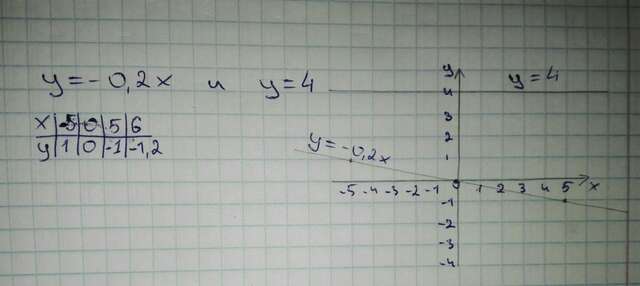 y = -0,2x и y = 4
x | -5 | 0 | 5 | 6
y | 1 | 0 | -1 | -1,2
y
y = 4
4
3
2
y = -0,2x
1
-5 -4 -3 -2 -1 0 1 2 3 4 5 x
-1
-2
-3
-4